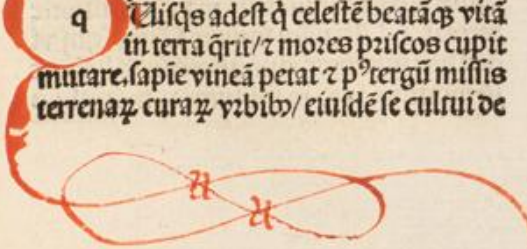 q Uisq̄s adest q̇ celestē beatāqꝫ vitā
in terra q̄rit/ ⁊ mores priscos cupit
mutare, sapīe vineā petat ⁊ pꝰtergū missis
terrenaꝝ curaꝝ vrbibꝫ/ eiusdē se cultui de